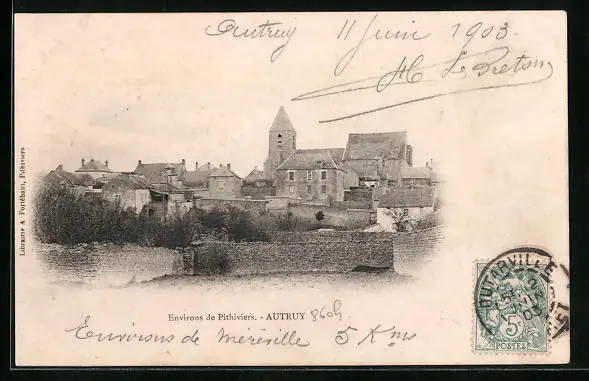 Autruy 11 juin 1903
H Le Breton
Librairie A. Portehaut, Pithiviers
Environs de Pithiviers. - AUTRUY
Environs de méréville 5 Kms
OUTARVILLE
5